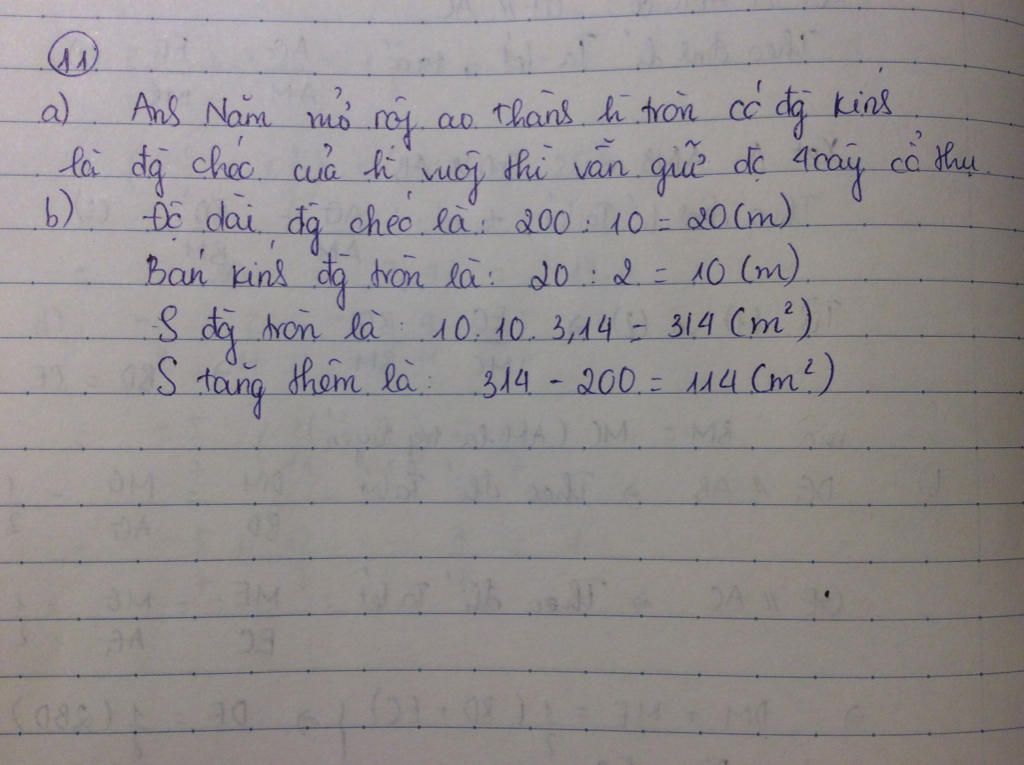 11
a) Anh Năm mở rộg ao thàh h tròn có đg kíh
là đg chéo của h vuôg thì vẫn giữ đc 4 cây cổ thụ.
b) Độ dài đg chéo là: 200 : 10 = 20 (m)
Bán kíh đg tròn là: 20 : 2 = 10 (m)
S đg tròn là: 10. 10. 3,14 = 314 (m²)
S tăng thêm là: 314 - 200 = 114 (m²)